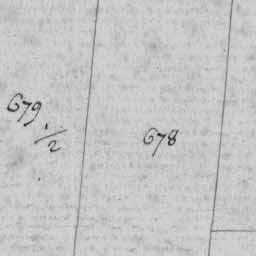 679 1/2
678